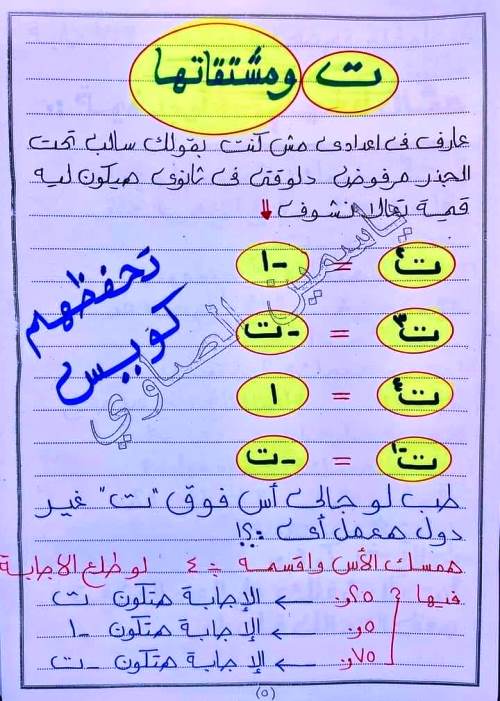 ت ومشتقاتها
عارف فى اعدادى مش كنت بقولك سالب تحت
الجذر مرفوض دلوقتى فى ثانوى هيكون ليه
قمية تعالا نشوف ↓
ت٢ = -١
ت٣ = -ت
ت٤ = ١
ت-١ = -ت
تحفظهم
كويس
ياسمين الصاوي
طب لو جالى أس فوق "ت" غير
دول هعمل أى ؟!
همسك الأس واقسمة ÷ ٤ لو طلع الاجابة
فيها ؟ ٢٥و. ← الإجابة هتكون ت
٥و. ← الإجابة هتكون -١
٧٥و. ← الإجابة هتكون -ت
(٥)